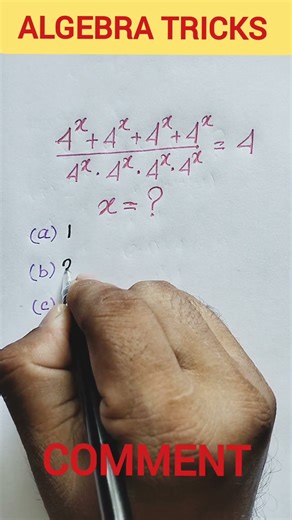 ALGEBRA TRICKS
4^x + 4^x + 4^x + 4^x / 4^x · 4^x · 4^x · 4^x = 4
x = ?
(a) 1
(b) 2
(c)
COMMENT